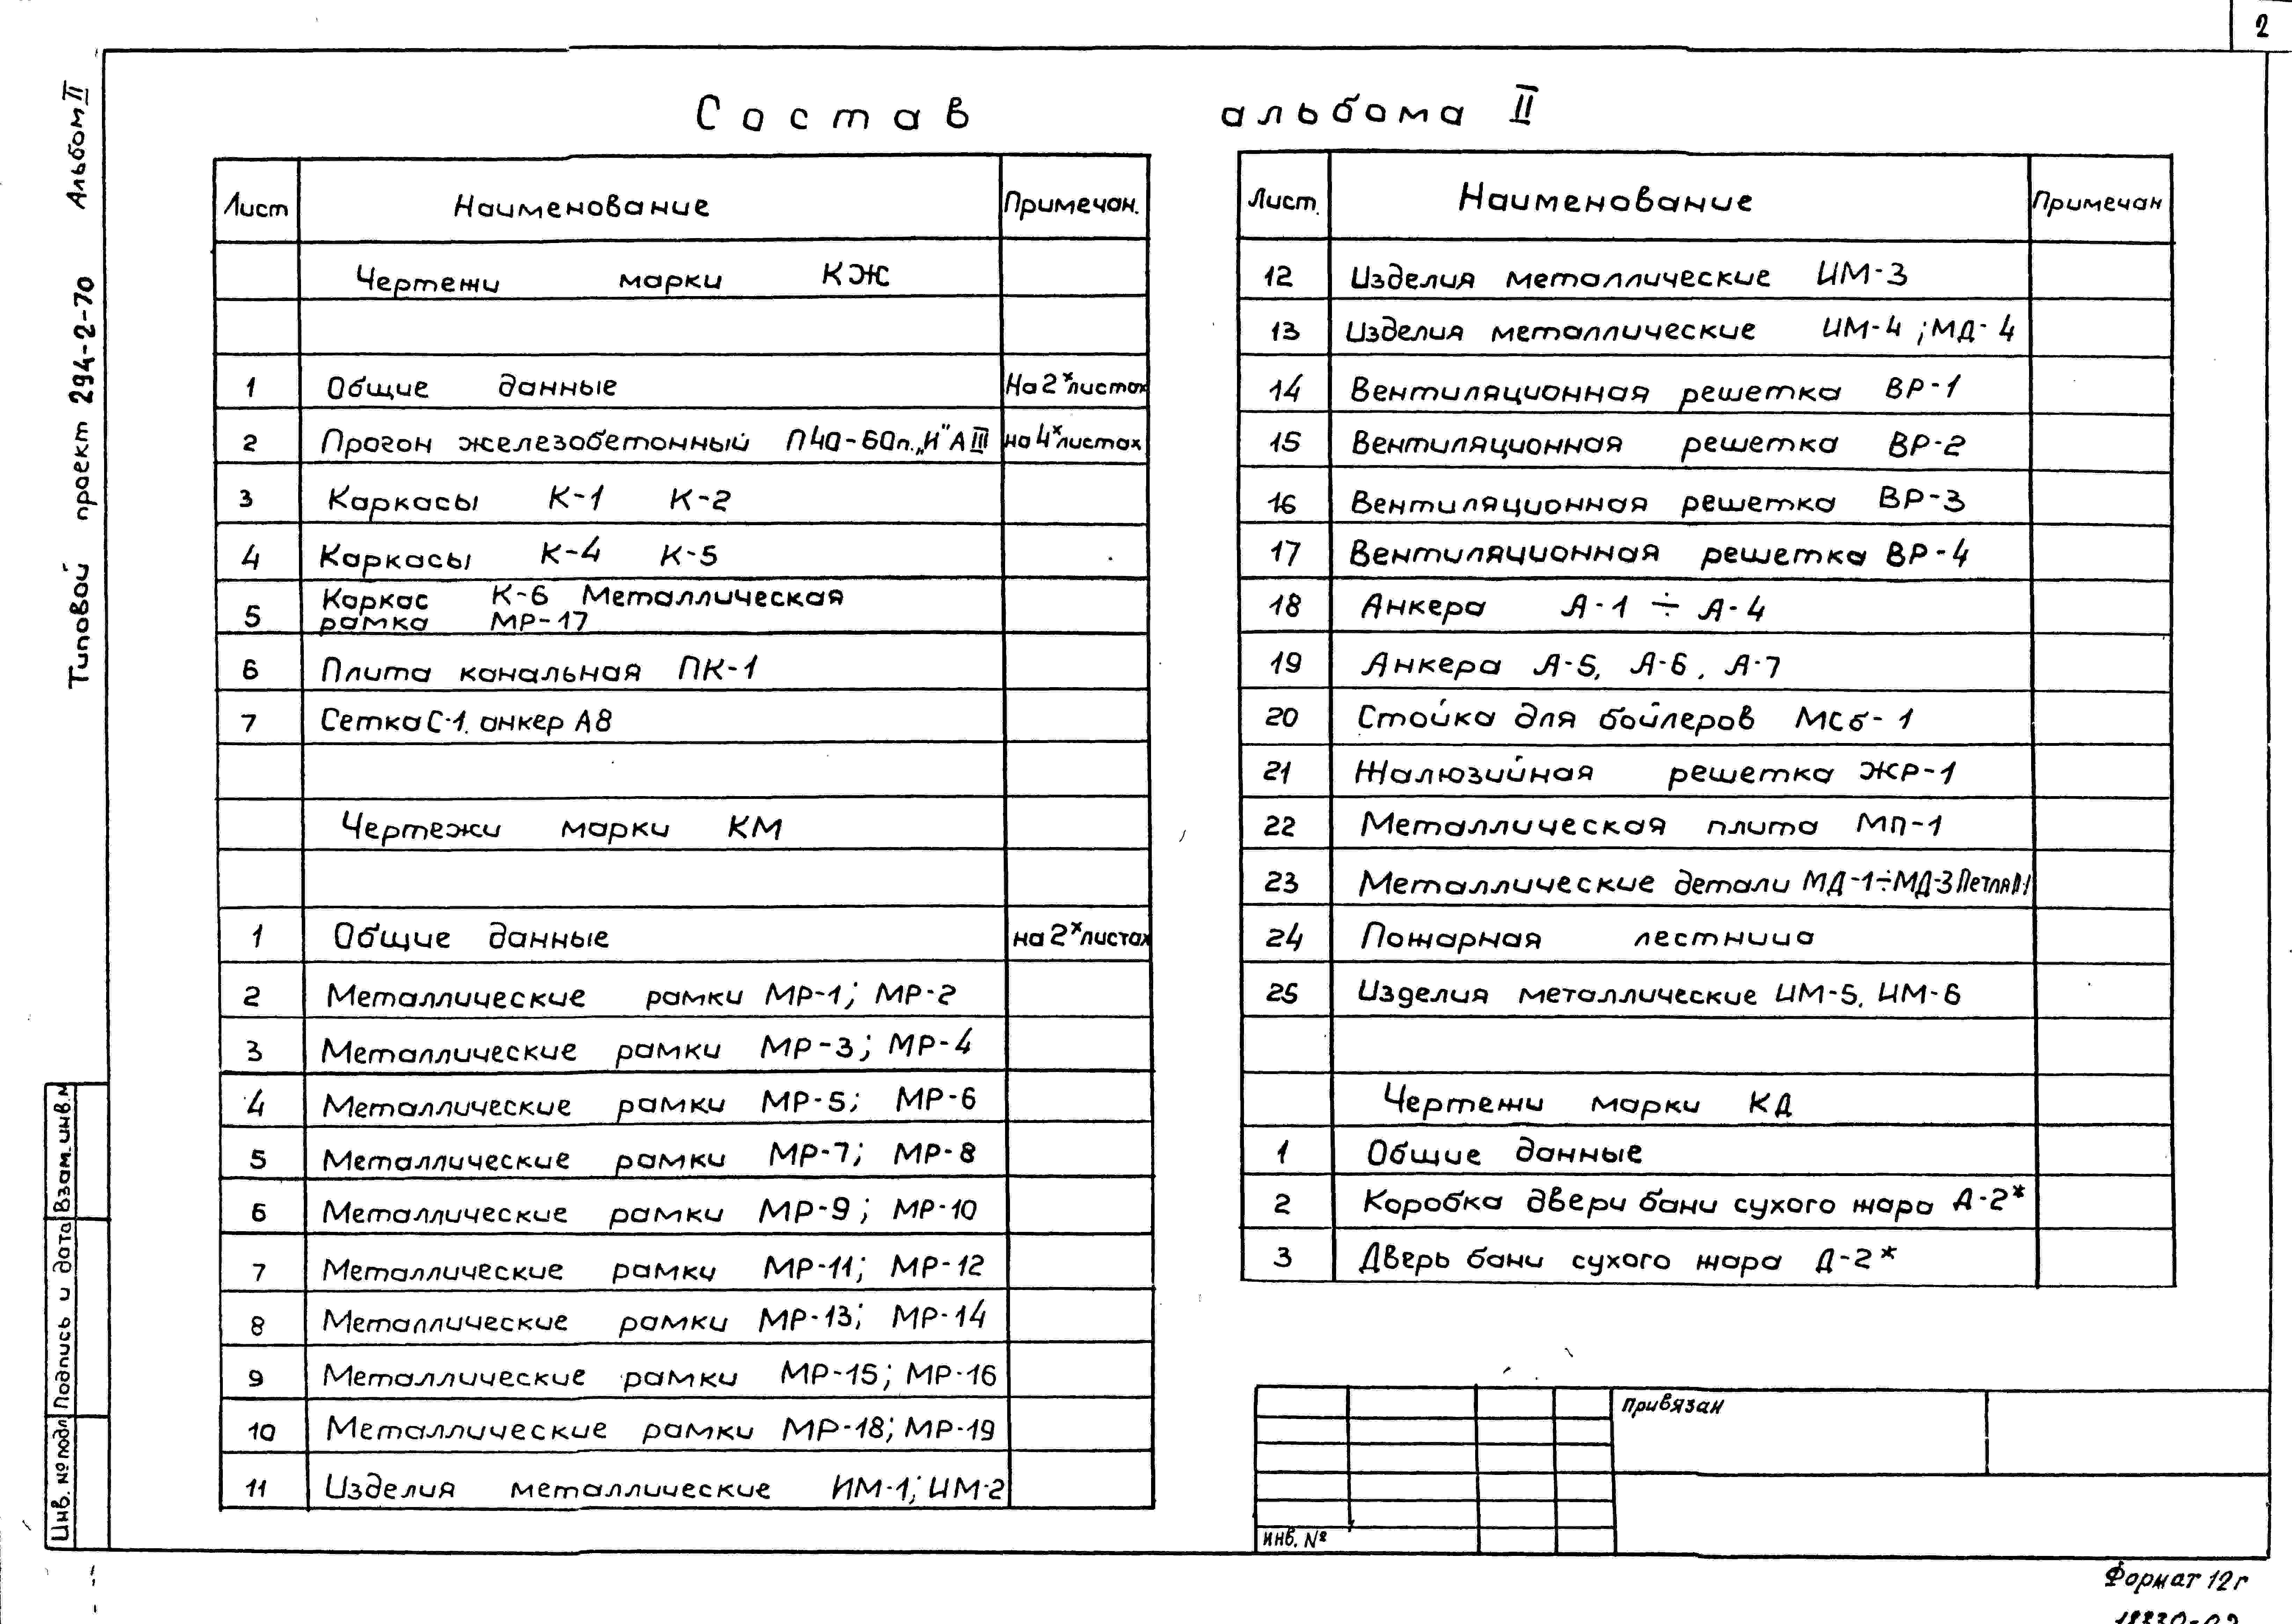 2
Альбом II
Типовой проект 294-2-70
Состав альбома II
Лист Наименование Примечан.
Чертежи марки КЖ
1 Общие данные На 2х листах
2 Прогон железобетонный П40-60п. „И" АIII на 4х листах
3 Каркасы К-1 К-2
4 Каркасы К-4 К-5
5 Каркас К-6 Металлическая
рамка МР-17
6 Плита канальная ПК-1
7 Сетка С-1. анкер А8
Чертежи марки КМ
1 Общие данные на 2х листах
2 Металлические рамки МР-1; МР-2
3 Металлические рамки МР-3; МР-4
4 Металлические рамки МР-5; МР-6
5 Металлические рамки МР-7; МР-8
6 Металлические рамки МР-9; МР-10
7 Металлические рамки МР-11; МР-12
8 Металлические рамки МР-13; МР-14
9 Металлические рамки МР-15; МР-16
10 Металлические рамки МР-18; МР-19
11 Изделия металлические ИМ-1; ИМ-2
Лист. Наименование Примечан
12 Изделия металлические ИМ-3
13 Изделия металлические ИМ-4; МД-4
14 Вентиляционная решетка ВР-1
15 Вентиляционная решетка ВР-2
16 Вентиляционная решетка ВР-3
17 Вентиляционная решетка ВР-4
18 Анкера А-1 ÷ А-4
19 Анкера А-5, А-6, А-7
20 Стойка для бойлеров МСб-1
21 Жалюзийная решетка ЖР-1
22 Металлическая плита МП-1
23 Металлические детали МД-1÷МД-3 Петля П1
24 Пожарная лестница
25 Изделия металлические ИМ-5, ИМ-6
Чертежи марки КД
1 Общие данные
2 Коробка двери бани сухого жара Д-2*
3 Дверь бани сухого жара Д-2*
Привязан
ИНВ. №
Инв. № подл. Подпись и дата Взам. инв. №
Формат 12г